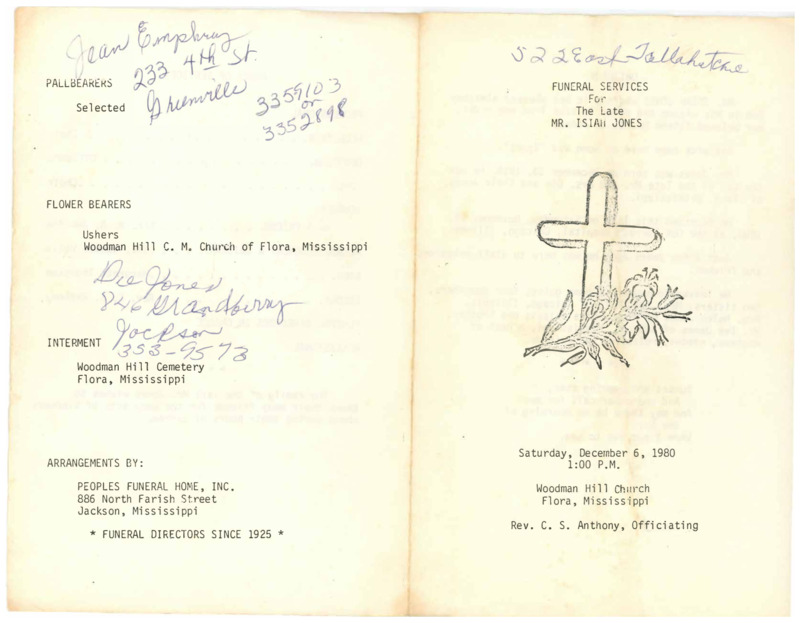 Jean Emphray
233 4th St.
PALLBEARERS
Selected
Greenville
3359103
or
3352898
FLOWER BEARERS
Ushers
Woodman Hill C. M. Church of Flora, Mississippi
Dee Jones
846 Grandberry
Jackson
353-9573
INTERMENT
Woodman Hill Cemetery
Flora, Mississippi
ARRANGEMENTS BY:
PEOPLES FUNERAL HOME, INC.
886 North Farish Street
Jackson, Mississippi
* FUNERAL DIRECTORS SINCE 1925 *
522 East Tallahatchie
FUNERAL SERVICES
For
The Late
MR. ISIAH JONES
Saturday, December 6, 1980
1:00 P.M.
Woodman Hill Church
Flora, Mississippi
Rev. C. S. Anthony, Officiating